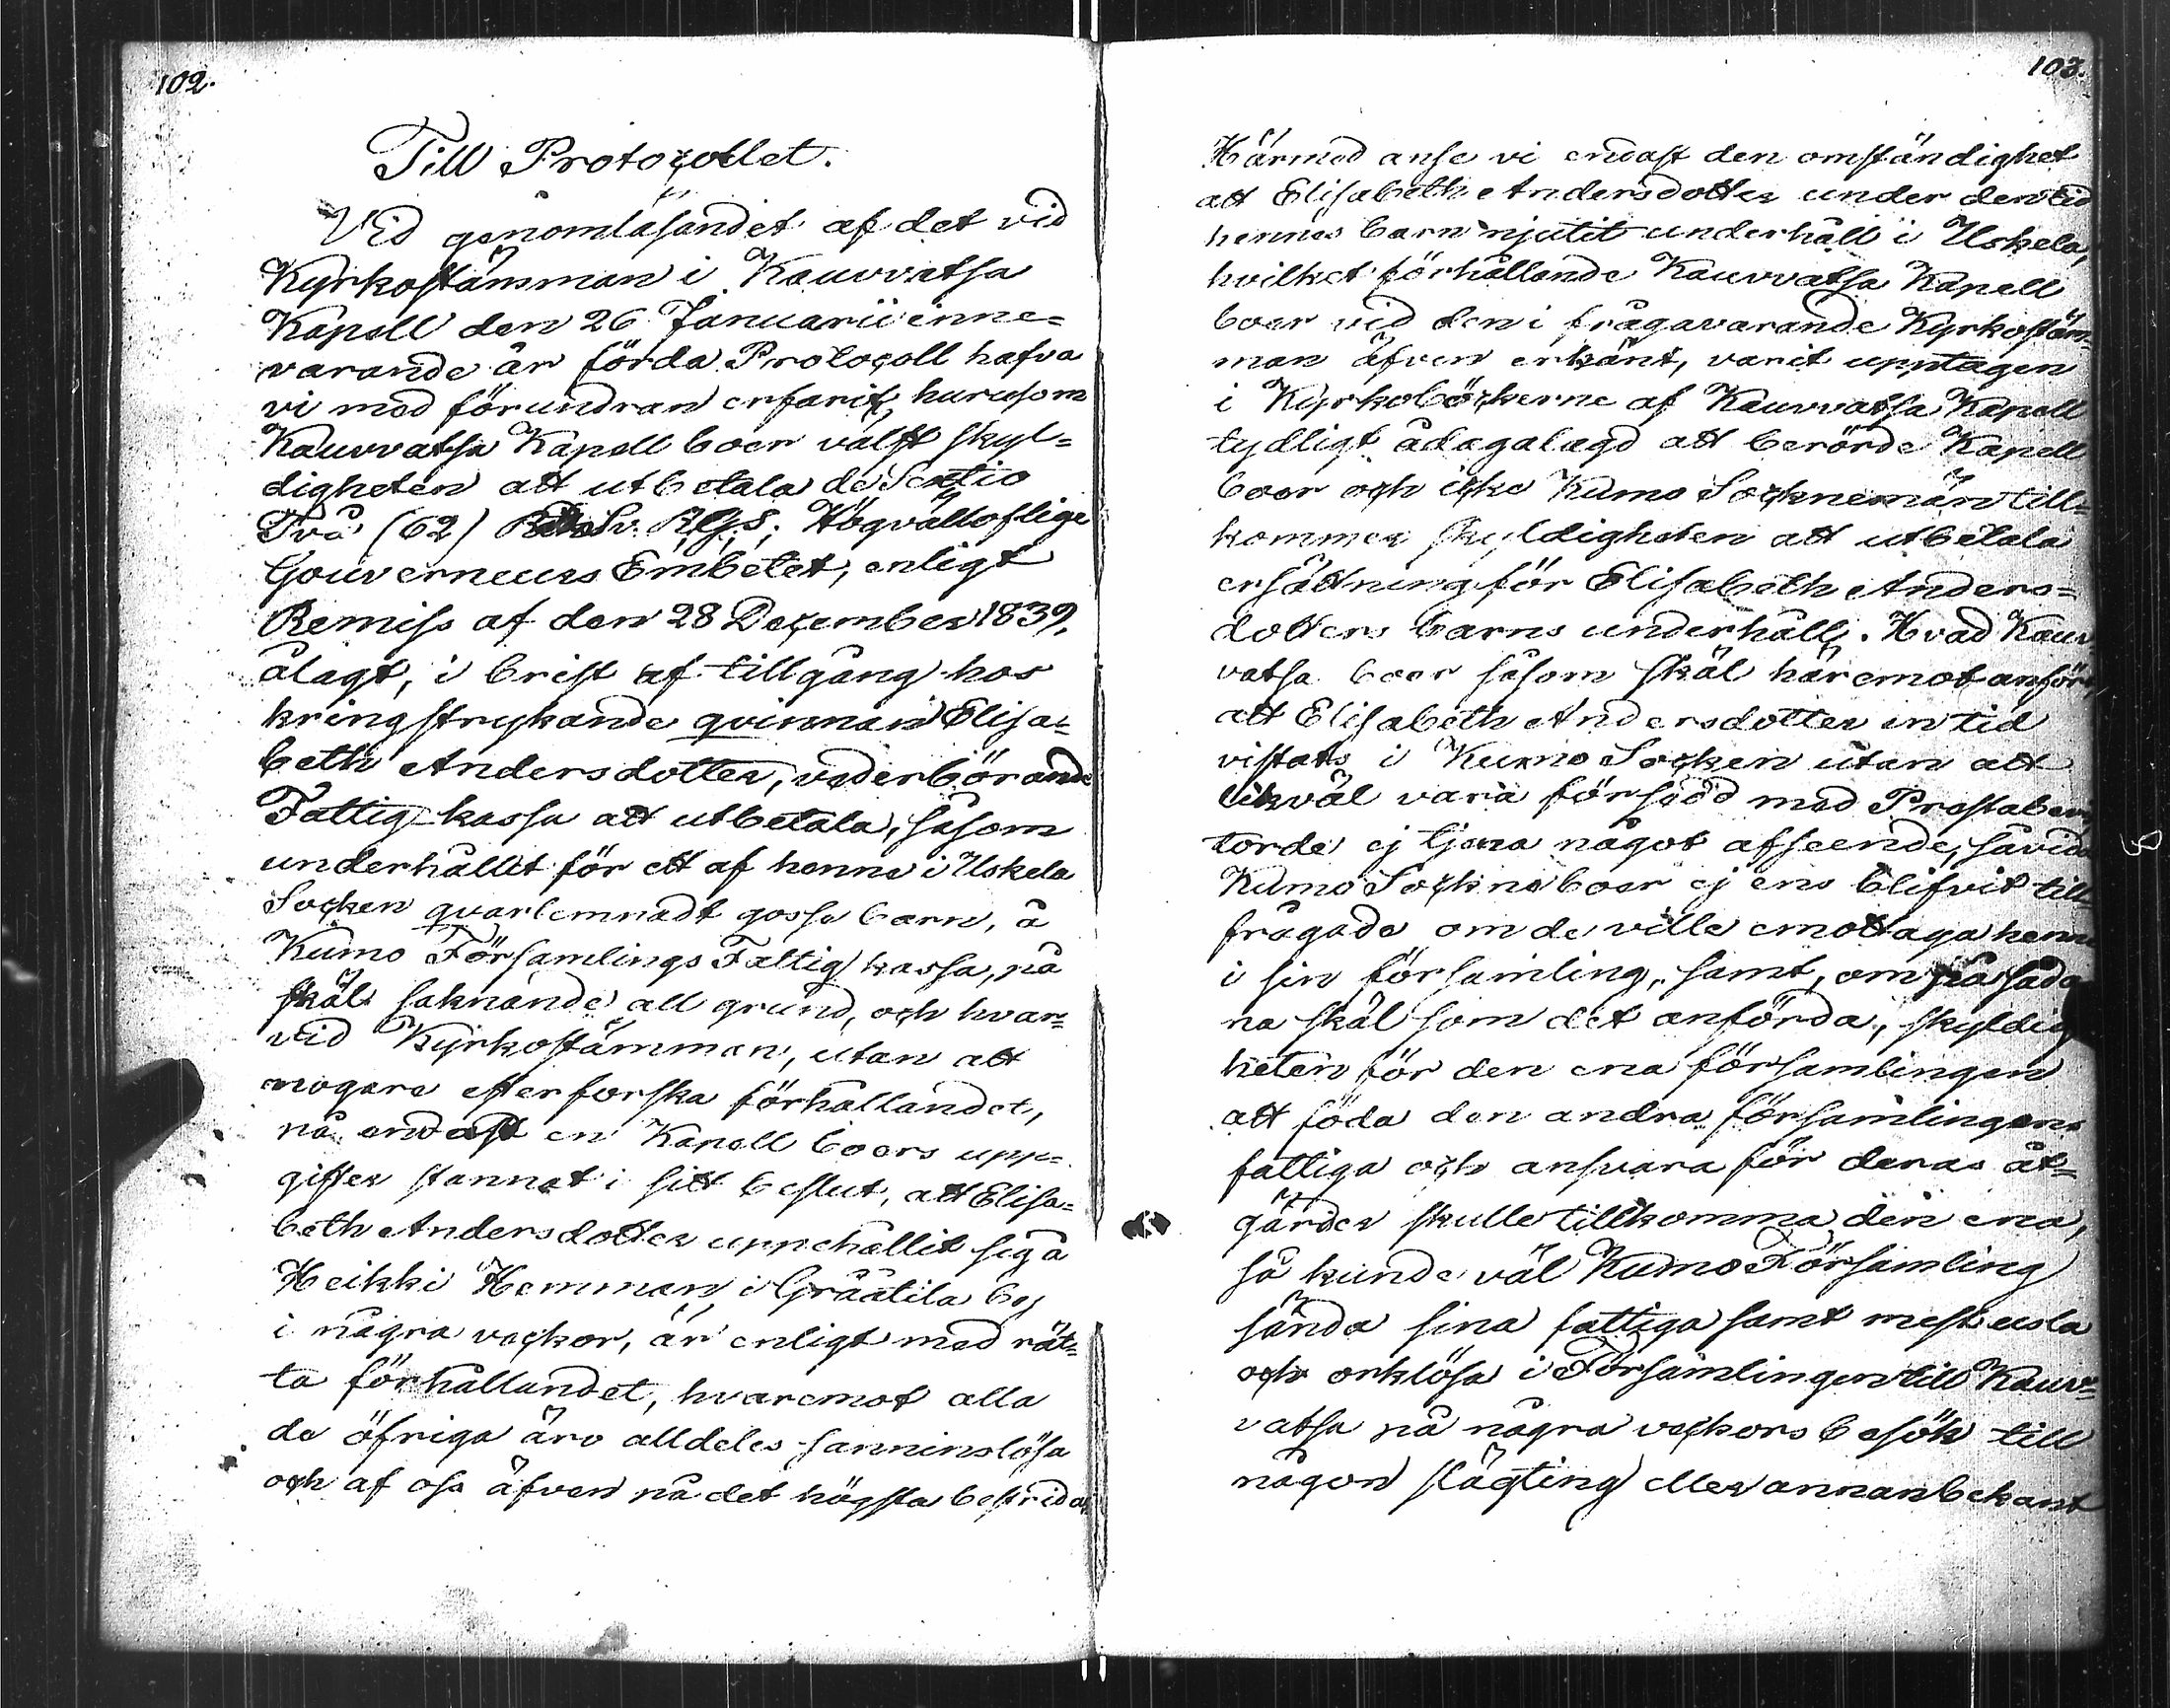 102.
Till Protocollet.
Vid genomläsandet af det vid
Kyrkostämman i Kauvvatsa
Kapell den 26 Januarii inne=
varande år förda Protocoll hafva
vi med förundran erfarit, hurusom
Kauvvatsa Kapell boer välft skyl=
digheten att utbetala de Sextio
Två (62) Sv. RGS. Högvälloflige
Gouverneurs Embetet, enligt
Remiss af den 28 December 1839,
ålagt, i brist af tillgång hos
kringstrykande qvinnan Elisa=
beth Andersdotter, vederbörande
Fattig kassa att utbetala, såsom
underhållit för ett af henne i Uskela
Socken qvarlemnadt gosse barn, å
Kumo Församlings Fattig kassa, på
skäl saknande all grund, och hvar=
vid Kyrkostämman, utan att
nogare efterforska förhållandet,
på endast en Kapell boers upp=
gifter stannat i sitt beslut, att Elisa=
beth Andersdotter uppehållit sig å
Heikki Hemman i Gräätila by
i några veckor, är enligt med rät=
ta förhållandet, hvaremot alla
de öfriga äro alldeles sanninslösa
och af oss äfven på det högsta bestridas
103.
Härmed anse vi endast den omständighet
att Elisabeth Andersdotter under den tid
hennes barn njutit underhåll i Uskela,
hvilket förhållande Kauvvatsa Kapell
boer vid den i frågavarande Kyrkostäm=
man äfven erkänt, varit upptagen
i Kyrkoböckerne af Kauvvatsa Kapell
tydligt ådagalagd att berörde Kapell
boer och icke Kumo Socknemän till=
kommer skyldigheten att utbetala
ersättning för Elisabeth Anders=
dotters barns underhåll. Hvad Kauv
vatsa boer såsom skäl häremot anfört,
att Elisabeth Andersdotter en tid
vistats i Kumo Socken utan att
likväl vara försedd med Prestabevis
torde ej tjena något afseende, såvida
Kumo Sockneboer ej ens blifvit till=
frågade om de ville emottaga henne
i sin församling, samt, om på såda
na skäl som det anförda, skyldig
heten för den ena församlingen
att föda den andra församlingens
fattiga och ansvara för deras åt=
gärder skulle tillkomma den ena,
så kunde väl Kumo Församling
sända sina fattiga samt mest usla
och orklösa i Församlingen till Kauv=
vatsa på några veckors besök till
någon slägting eller annan bekant